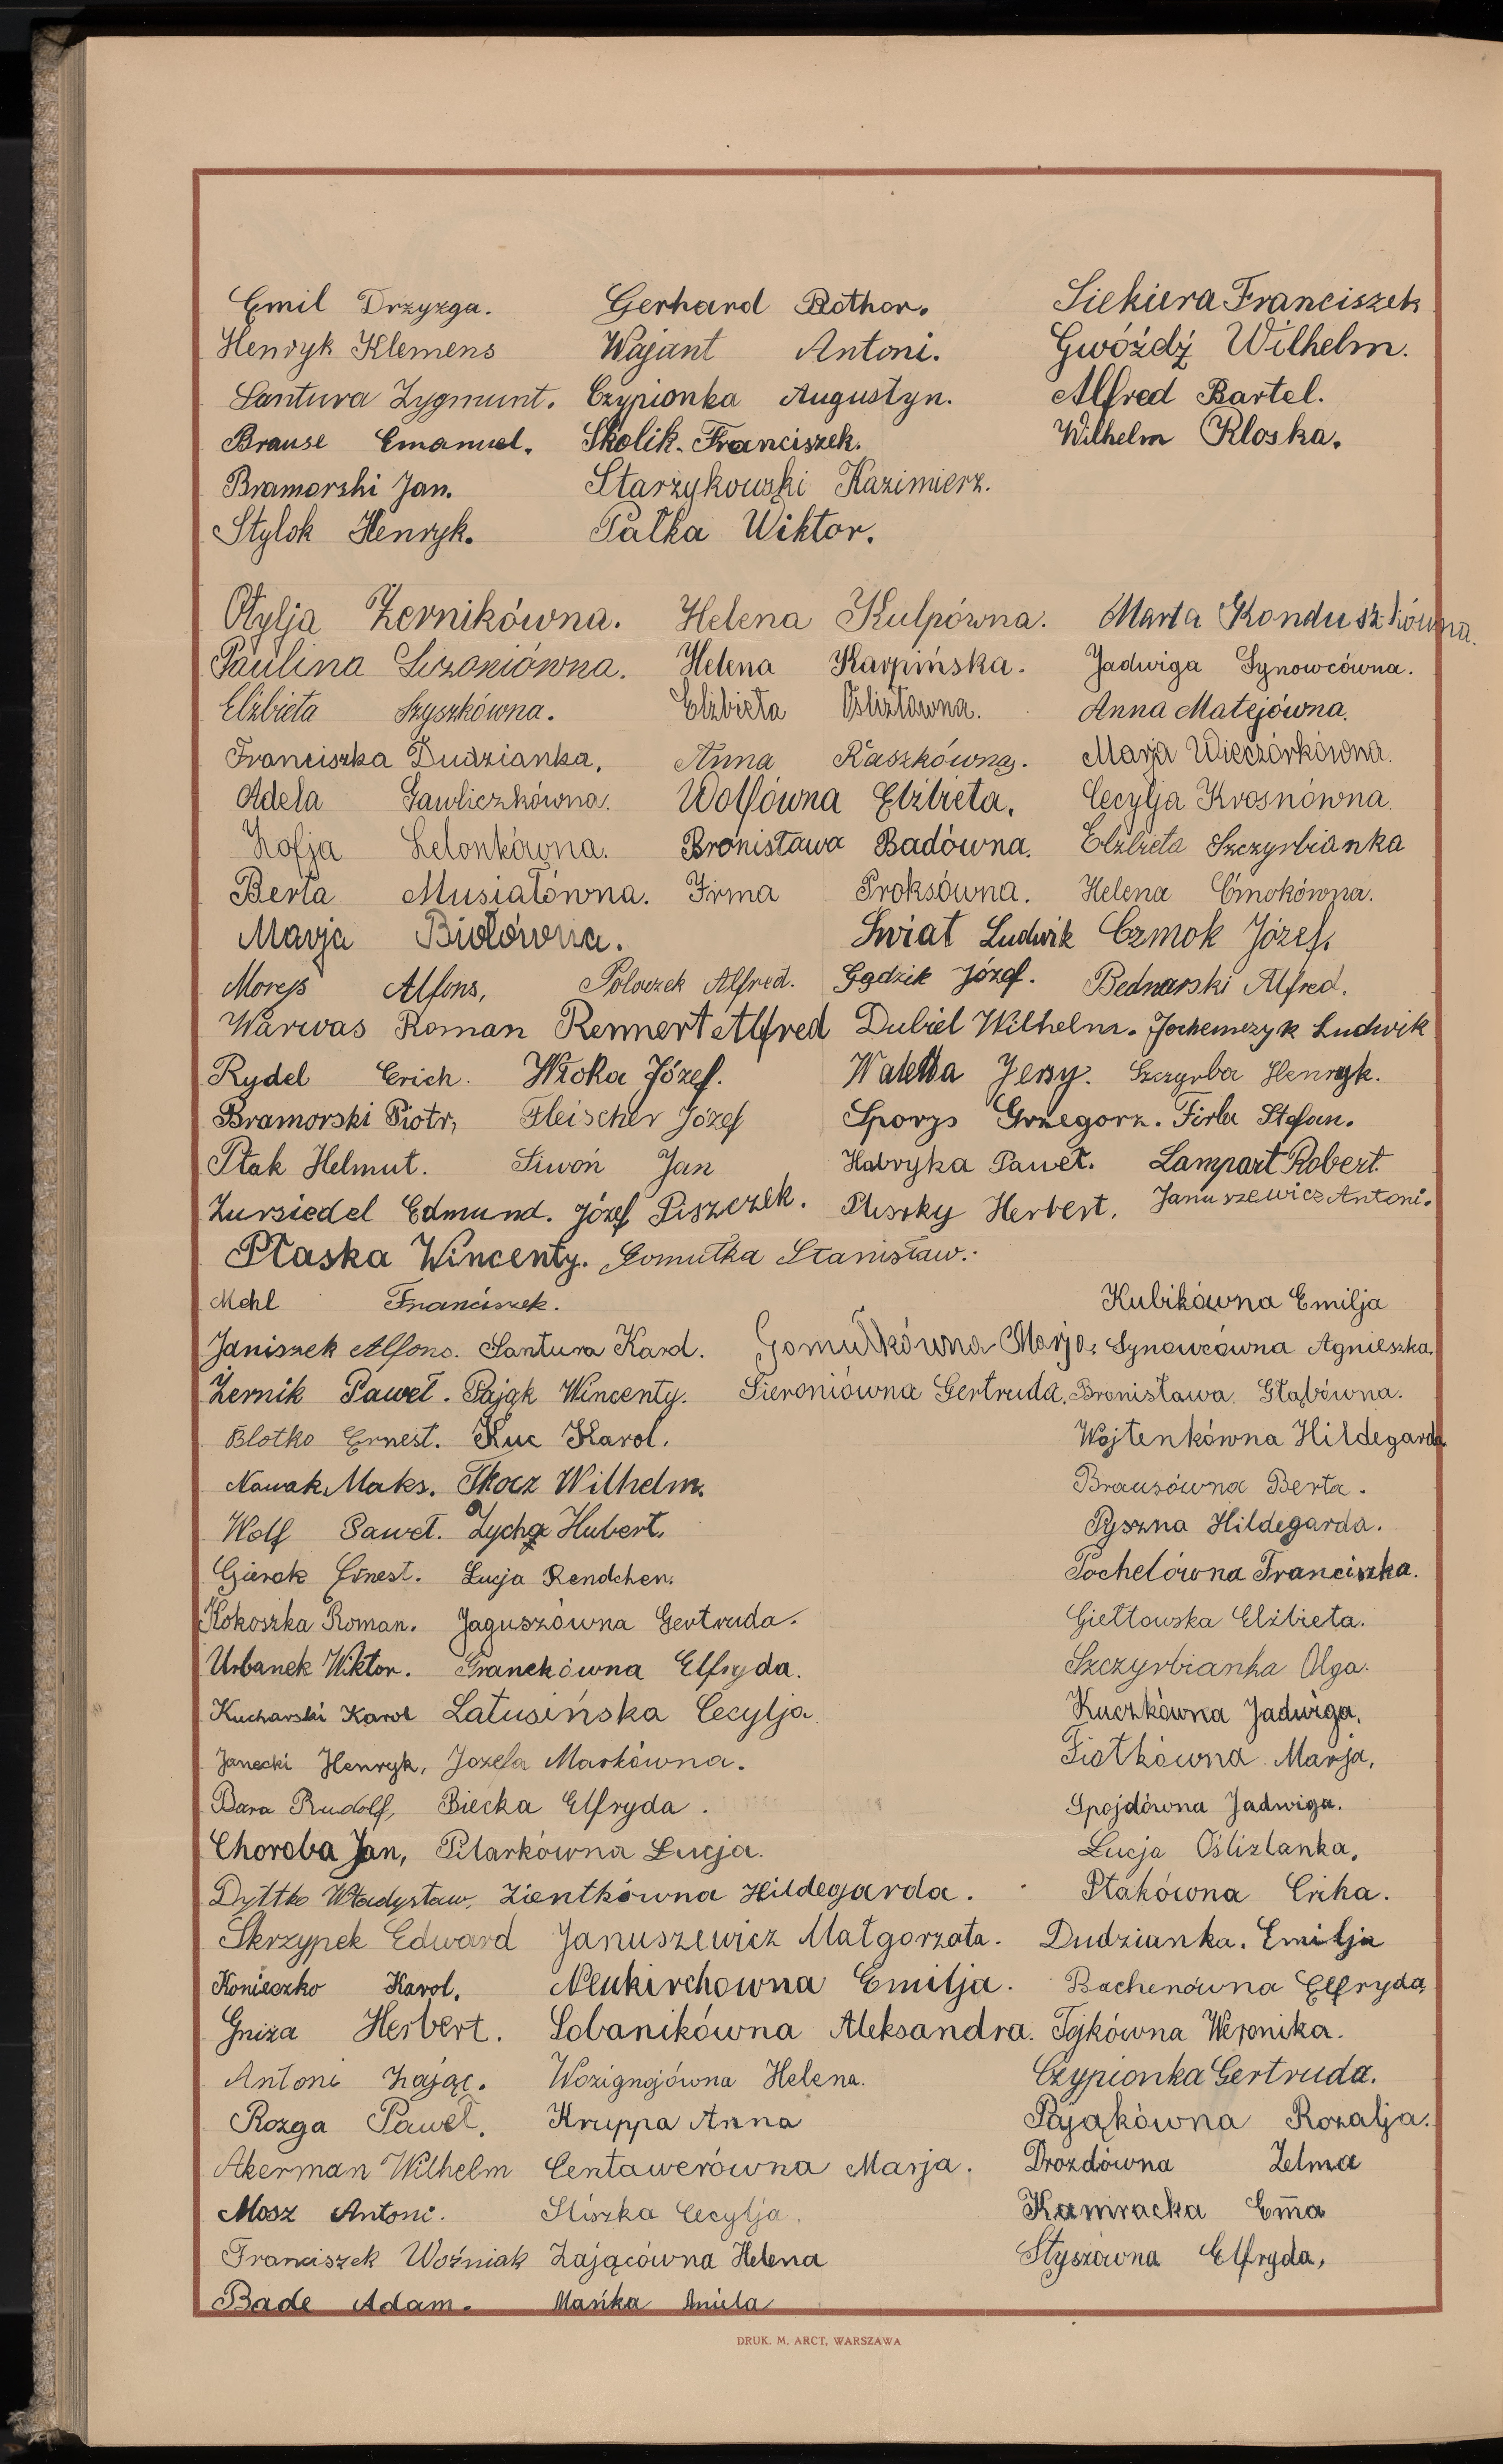 Emil Drzyzga. Gerhard Rother. Siekiera Franciszek
Henryk Klemens Wajant Antoni. Gwóźdź Wilhelm.
Santura Zygmunt. Czypionka Augustyn. Alfred Bartel.
Brause Emanuel. Skolik Franciszek. Wilhelm Kloska.
Bramorski Jan. Starzykowski Kazimierz.
Stylok Henryk. Pałka Wiktor.
Otylja Żernikówna. Helena Kulpówna. Marta Konduszkówna.
Paulina Helena Karpińska. Jadwiga Synowcówna.
Elżbieta Szyszkówna. Elżbieta Oślizłówna. Anna Matejówna.
Franciszka Dudzianka, Anna Kaszkówna. Marja Wieczórkówna.
Adela Gawliczkówna. Wolfówna Elżbieta. Cecylja Krosnówna.
Zofja Lelonkówna. Bronisława Badówna. Elżbieta Szczyrbianka
Berta Musiałówna. Irma Proksówna. Helena Ćmokówna.
Marja Biolówna. Świat Ludwik Czmok Józef.
Morejs Alfons, Poloczek Alfred. Gądzik Józef. Bednarski Alfred.
Warwas Roman Rennert Alfred Dubiel Wilhelm. Jochemczyk Ludwik
Rydel Erich. Wloka Józef. Waletta Jerzy. Szczyrba Henryk.
Bramorski Piotr, Fleischer Józef Sporys Grzegorz. Firla Stefan.
Ptak Helmut. Siwoń Jan Habryka Paweł. Lampart Robert.
Zursiedel Edmund. Józef Piszczek. Plessky Herbert. Januszewicz Antoni.
Płaska Wincenty. Gomułka Stanisław.
Mehl Franciszek. Kubikówna Emilja
Janiszek Alfons. Santura Karol. Gomułkówna Marja. Synowcówna Agnieszka.
Żernik Paweł. Pająk Wincenty. Sieroniówna Gertruda. Bronisława Głąbówna.
Blotko Ernest. Kuc Karol. Wojtenkówna Hildegarda.
Nowak Maks. Tkocz Wilhelm. Brausówna Berta.
Wolf Paweł. Zycha Hubert. Pyszna Hildegarda.
Gierok Ernest. Łucja Rendchen. Pochelówna Franciszka.
Kokoszka Roman. Jaguszówna Gertruda. Giełtowska Elżbieta.
Urbanek Wiktor. Granekówna Elfryda. Szczyrbianka Olga.
Kucharski Karol Latusińska Cecylja. Kuczkówna Jadwiga.
Janecki Henryk, Józefa Markówna. Fiołkówna Marja.
Bara Rudolf, Biecka Elfryda. Spojdówna Jadwiga.
Choroba Jan, Pilarkówna Łucja. Łucja Oślizlanka.
Dyttko Władysław, Zientkówna Hildegarda. Ptakówna Erika.
Skrzypek Edward Januszewicz Małgorzata. Dudzianka. Emilja
Konieczko Karol. Neukirchowna Emilja. Bachenówna Elfryda.
Gniza Herbert. Sobanikówna Aleksandra. Tojkówna Weronika.
Antoni Zając. Wozignojówna Helena. Czypionka Gertruda.
Rozga Paweł. Kruppa Anna Pająkówna Rozalja.
Akerman Wilhelm Centawerówna Marja. Drozdówna Zelma
Mosz Antoni. Śliszka Cecylja. Kamracka Em̄a
Franciszek Woźniak Zającówna Helena Styszówna Elfryda,
Bade Adam. Mańka Aniela
DRUK. M. ARCT, WARSZAWA